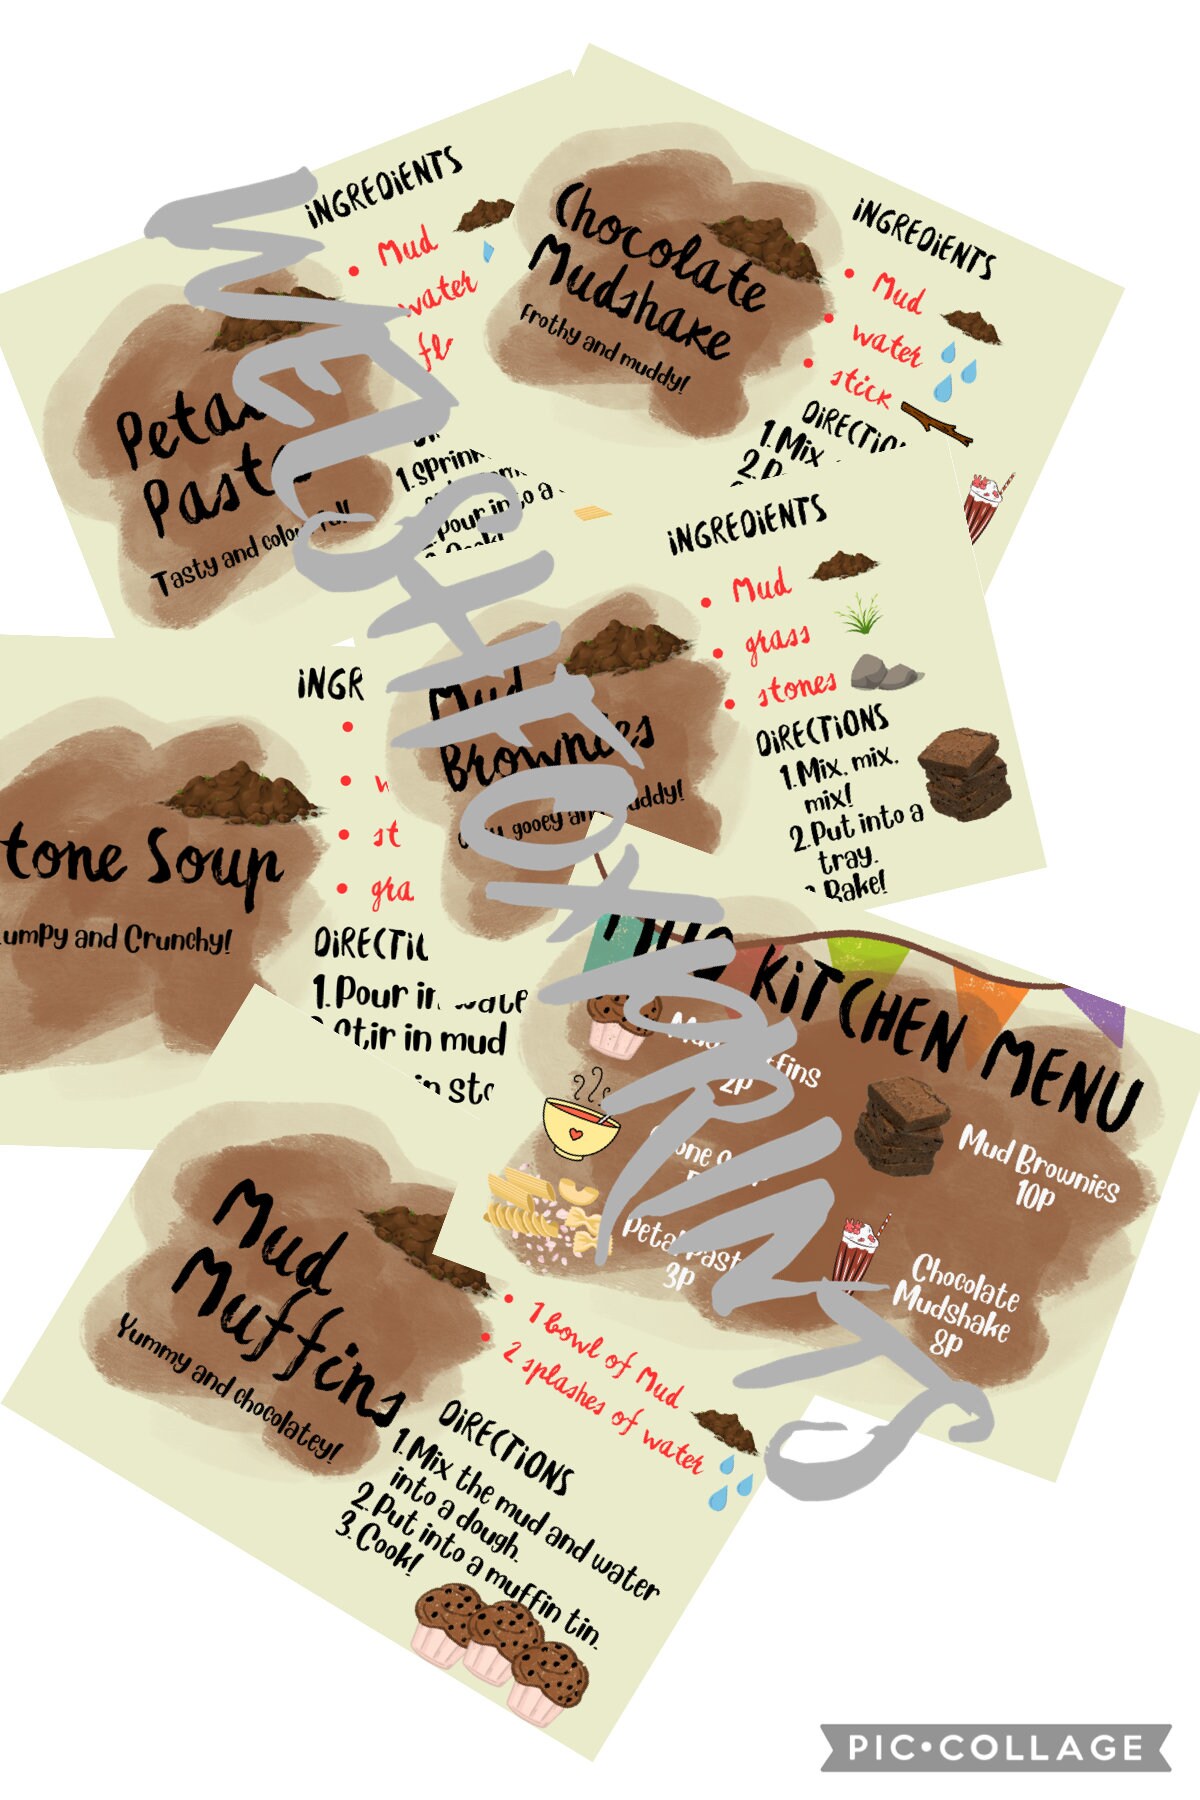 INGREDIENTS
Mud
water
Petal
Pasta
Tasty and colourful!
Chocolate
Mudshake
Frothy and muddy!
INGREDIENTS
Mud
water
stick
DIRECTIONS
1.Mix
2.
1.Sprin
Pour into a
Cook!
INGREDIENTS
Mud
grass
stones
Mud
Brownies
gooey and muddy!
DIRECTIONS
1.Mix, mix,
mix!
2.Put into a
tray.
Bake!
INGR
st
gra
tone Soup
umpy and Crunchy!
DIRECTI
1.Pour in wate
Stir in mud
in sto
MUD KITCHEN MENU
Mud Muffins
2p
Mud Brownies
10p
Petal Past
3p
Chocolate
Mudshake
8p
Mud
Muffins
Yummy and chocolatey!
1 bowl of Mud
2 splashes of water
DIRECTIONS
1.Mix the mud and water
into a dough.
2.Put into a muffin tin.
3.Cook!
WELSHFOXPRINTS
PIC•COLLAGE